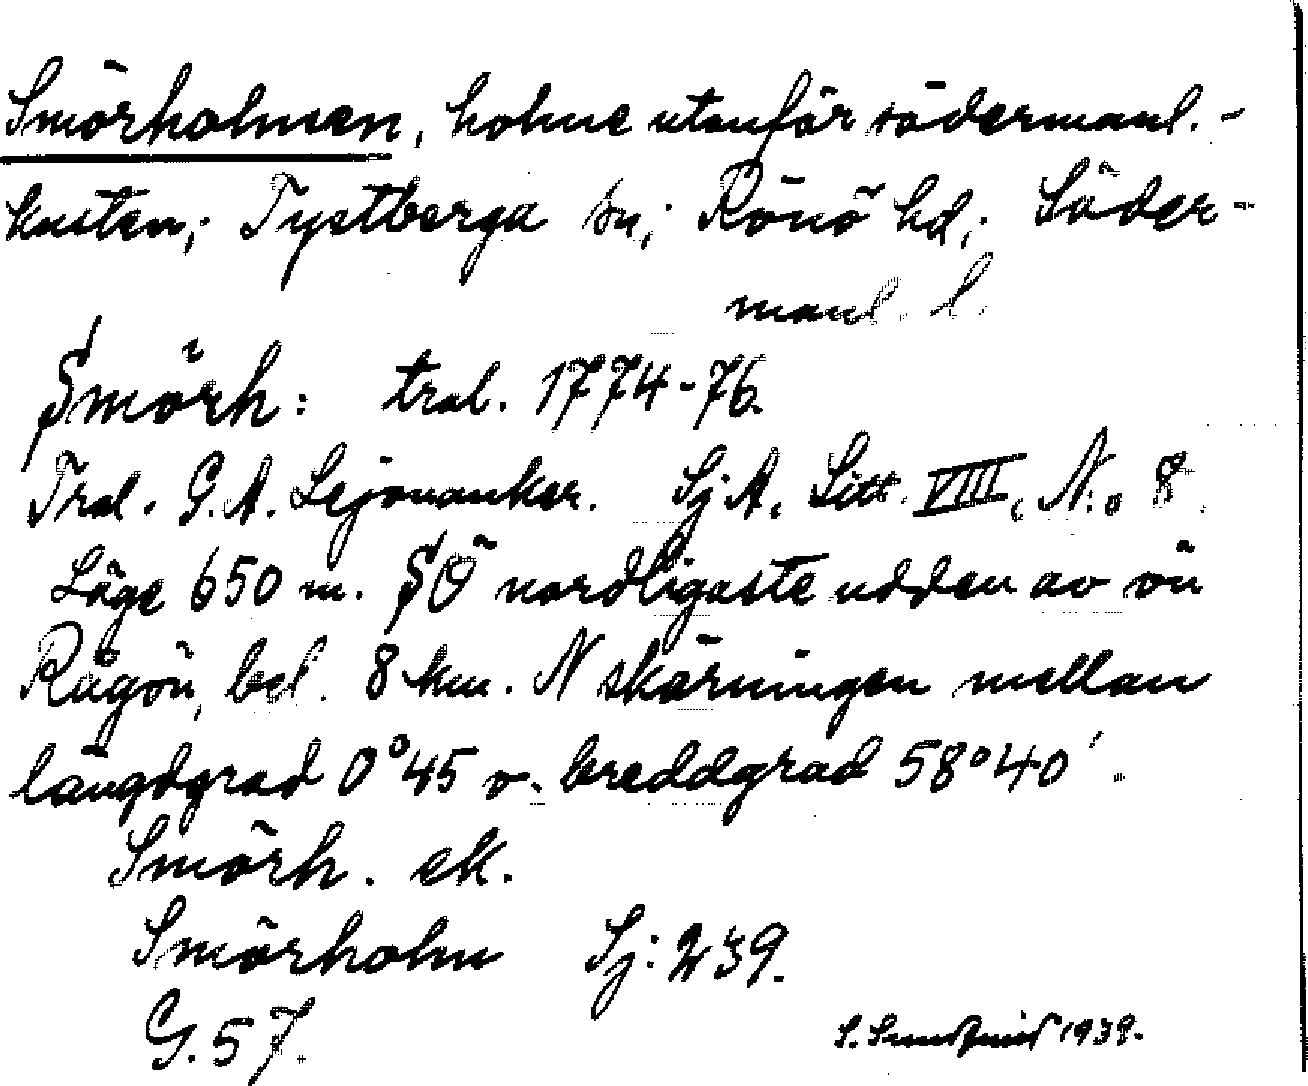 Smörholmen, holme utanför södermanl.-
kusten; Tystberga sn; Rönö hd; Söder-
manl. l.
Smörh: tral. 1774-76.
Tral. G.A. Lejonanker. Sj.A. Litt. VIII, N:o 8.
Läge 650 m. SÖ nordligaste udden av ön
Rågön, bel. 8 km. N skärningen mellan
längdgrad 0°45 o. breddgrad 58°40'.
Smörh. ek.
Smörholm Sj: 239.
G. 57.
S. 1939.